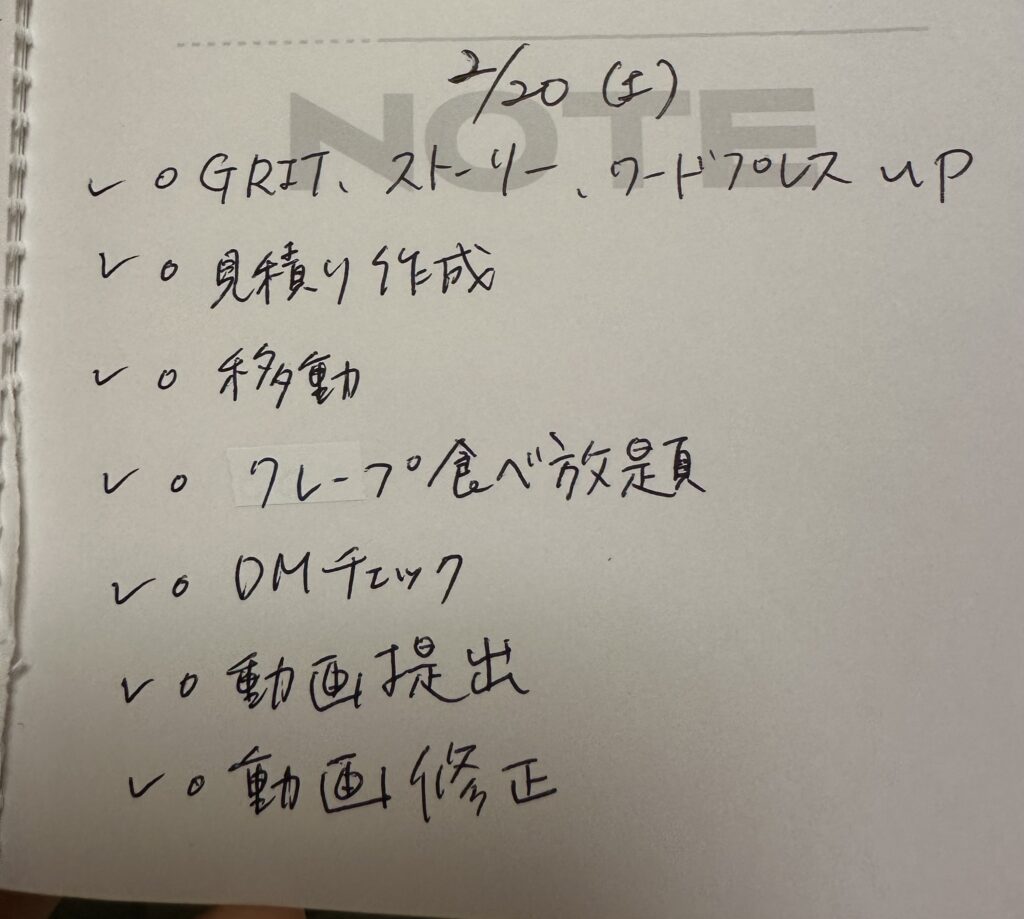 NOTE
2/20 (土)
✓ ○ GRIT、ストーリー、ワードプレス UP
✓ ○ 見積り作成
✓ ○ 移動
✓ ○ クレープ食べ放題
✓ ○ DMチェック
✓ ○ 動画提出
✓ ○ 動画修正